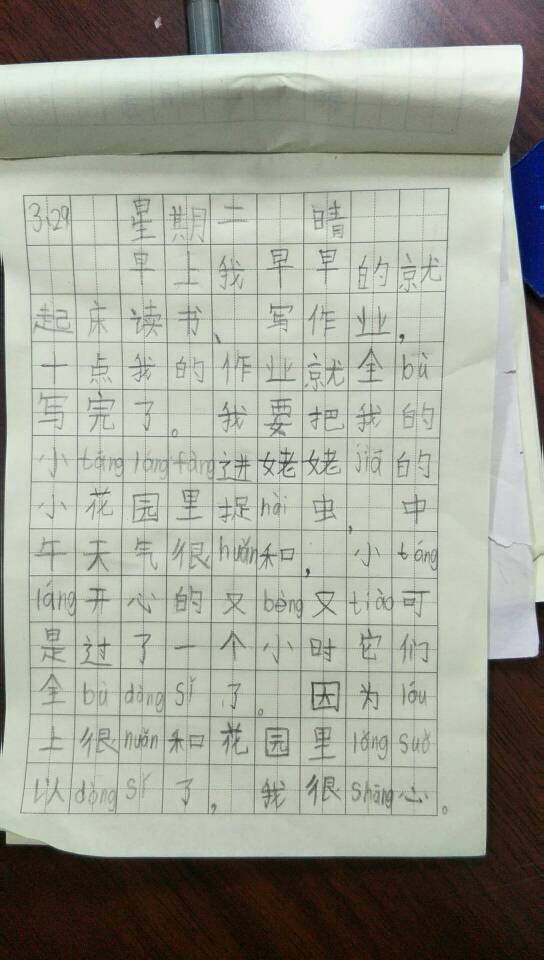 3.29 星期二 晴
早上我早早的就
起床读书、写作业,
十点我的作业就全bù
写完了。我要把我的
小táng láng fàng进姥姥jiā的
小花园里捉hài虫,中
午天气很nuǎn和,小táng
láng开心的又bèng又tiào可
是过了一个小时它们
全bù dòng sǐ了。因为lóu
上很nuǎn和花园里lěng suǒ
以dòng sǐ了,我很shāng心。